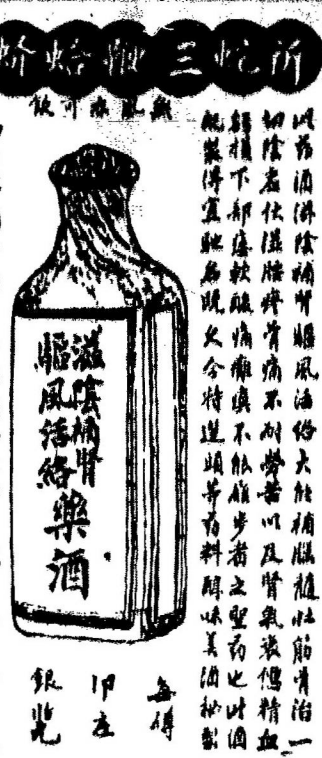 三
無風亦可飲
此药酒滋陰補腎驅風活络大能補腦髓壯筋骨治一
切陰虛伏濕腰痺骨痛不耐勞苦以及腎氣衰憊精血
虧損下部痿軟酸痛癱瘓不能履步者之聖药也此酒
製得宜馳名既久今特選頭等药料醇味美酒秘製
滋陰補腎
驅風活絡
藥酒
每樽
銀